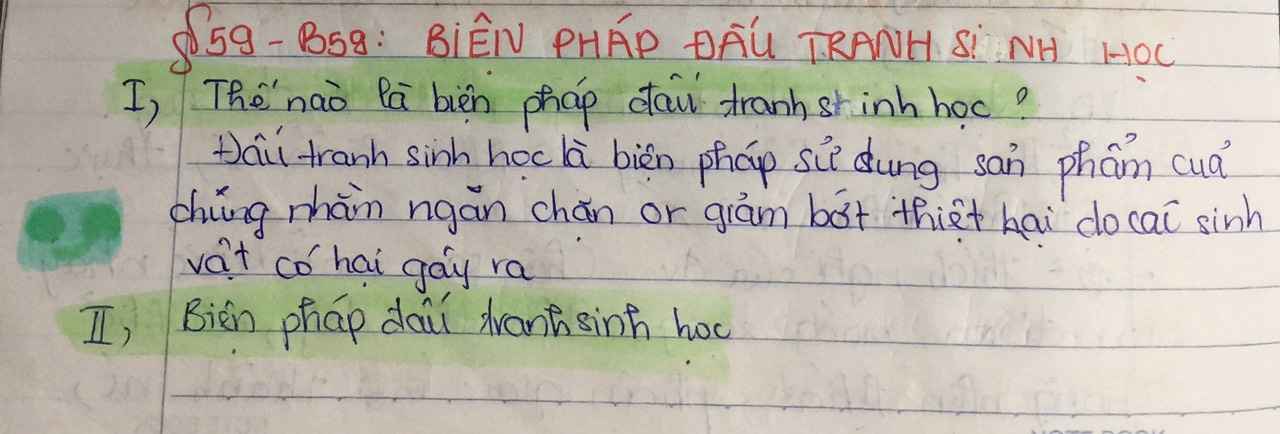 §59 - B59: BIỆN PHÁP ĐẤU TRANH SINH HỌC
I, Thế nào là biện pháp đấu tranh sinh học?
Đấu tranh sinh học là biện pháp sử dụng sản phẩm của
chúng nhằm ngăn chặn or giảm bớt thiệt hại do các sinh
vật có hại gây ra
II, Biện pháp đấu tranh sinh học